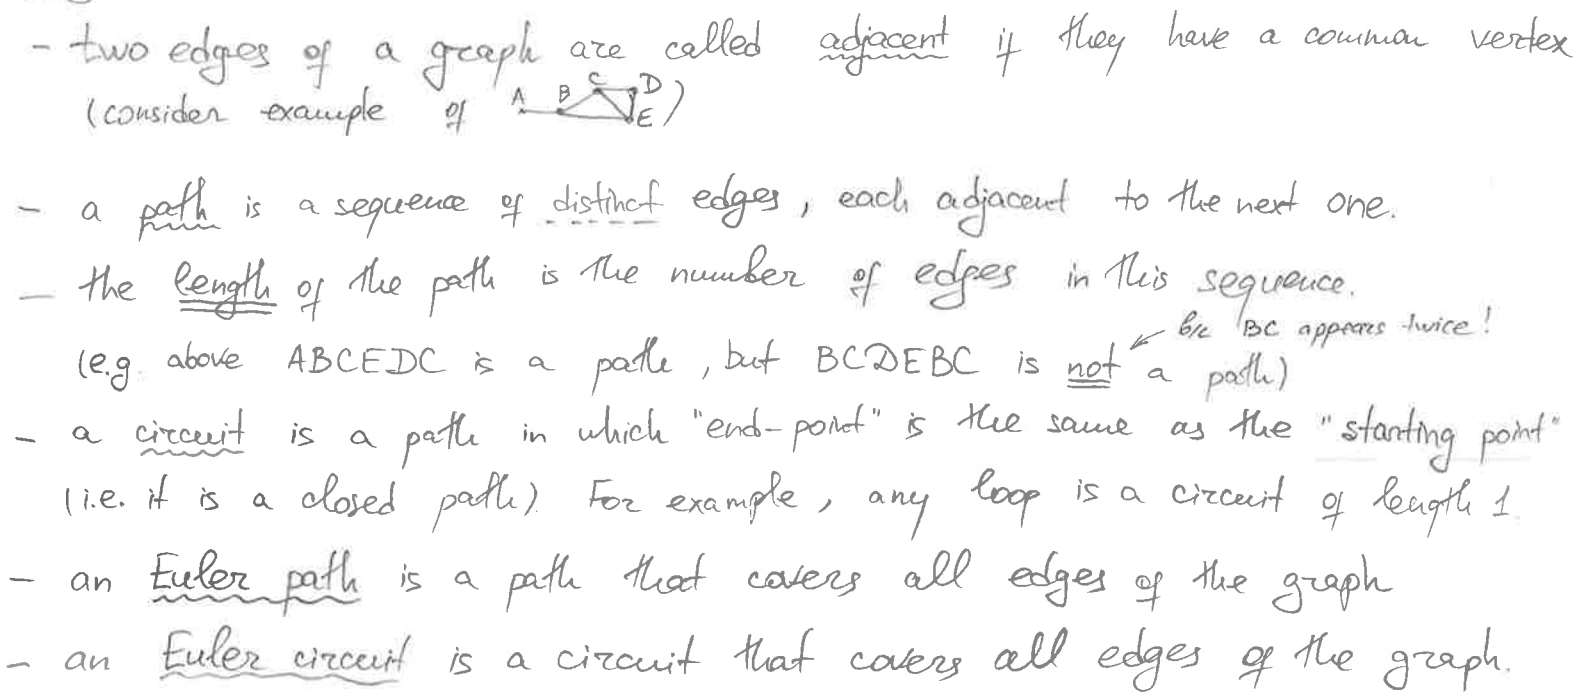 - two edges of a graph are called adjacent if they have a common vertex
(consider example of A B C D E)
- a path is a sequence of distinct edges, each adjacent to the next one.
- the length of the path is the number of edges in this sequence.
b/c BC appears twice!
(e.g. above ABCEDC is a path, but BCDEBC is not a path)
- a circuit is a path in which "end-point" is the same as the "starting point"
(i.e. it is a closed path). For example, any loop is a circuit of length 1
- an Euler path is a path that covers all edges of the graph
- an Euler circuit is a circuit that covers all edges of the graph.